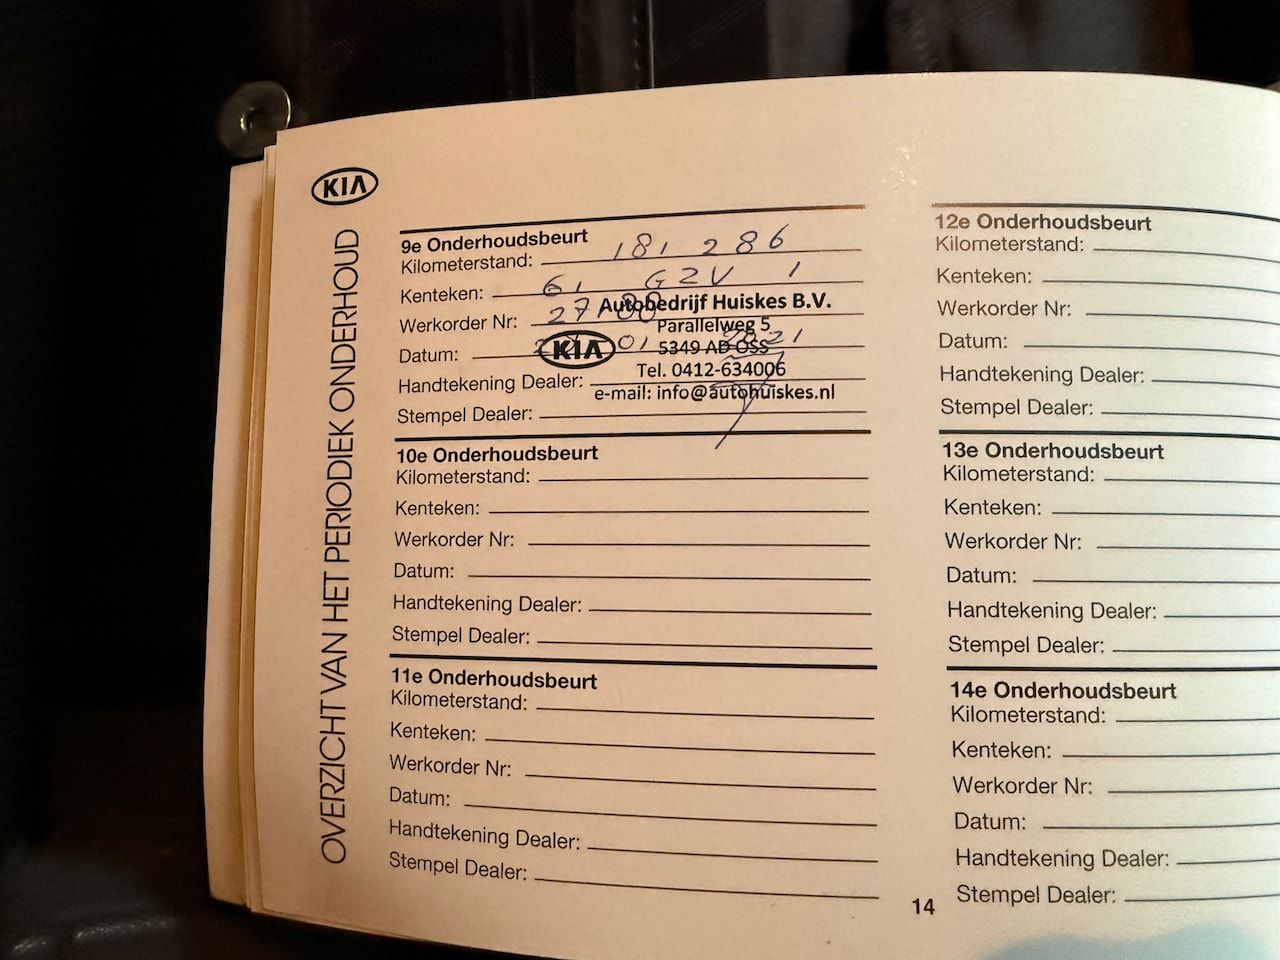 KIA
OVERZICHT VAN HET PERIODIEK ONDERHOUD
9e Onderhoudsbeurt
Kilometerstand: 181 286
Kenteken: 61 GZV 1
Werkorder Nr:
Datum: 01 2021
Handtekening Dealer:
Stempel Dealer:
Autobedrijf Huiskes B.V.
Parallelweg 5
KIA 5349 AD OSS
Tel. 0412-634006
e-mail: info@autohuiskes.nl
10e Onderhoudsbeurt
Kilometerstand:
Kenteken:
Werkorder Nr:
Datum:
Handtekening Dealer:
Stempel Dealer:
11e Onderhoudsbeurt
Kilometerstand:
Kenteken:
Werkorder Nr:
Datum:
Handtekening Dealer:
Stempel Dealer:
12e Onderhoudsbeurt
Kilometerstand:
Kenteken:
Werkorder Nr:
Datum:
Handtekening Dealer:
Stempel Dealer:
13e Onderhoudsbeurt
Kilometerstand:
Kenteken:
Werkorder Nr:
Datum:
Handtekening Dealer:
Stempel Dealer:
14e Onderhoudsbeurt
Kilometerstand:
Kenteken:
Werkorder Nr:
Datum:
Handtekening Dealer:
Stempel Dealer:
14